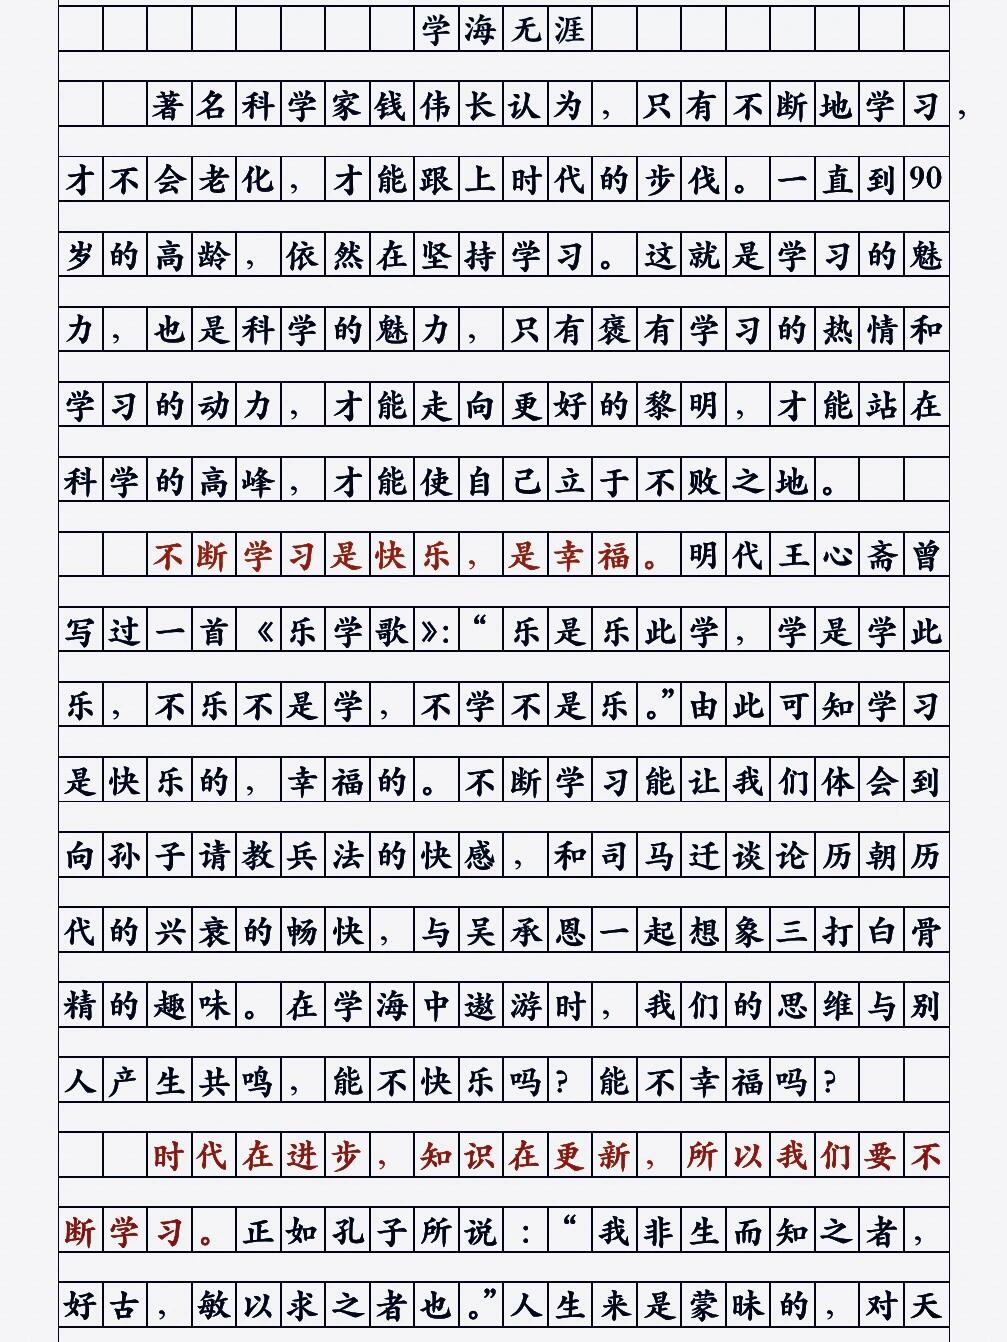 学海无涯
著名科学家钱伟长认为，只有不断地学习，
才不会老化，才能跟上时代的步伐。一直到90
岁的高龄，依然在坚持学习。这就是学习的魅
力，也是科学的魅力，只有褒有学习的热情和
学习的动力，才能走向更好的黎明，才能站在
科学的高峰，才能使自己立于不败之地。
不断学习是快乐，是幸福。明代王心斋曾
写过一首《乐学歌》：“乐是乐此学，学是学此
乐，不乐不是学，不学不是乐。”由此可知学习
是快乐的，幸福的。不断学习能让我们体会到
向孙子请教兵法的快感，和司马迁谈论历朝历
代的兴衰的畅快，与吴承恩一起想象三打白骨
精的趣味。在学海中遨游时，我们的思维与别
人产生共鸣，能不快乐吗？能不幸福吗？
时代在进步，知识在更新，所以我们要不
断学习。正如孔子所说：“我非生而知之者，
好古，敏以求之者也。”人生来是蒙昧的，对天